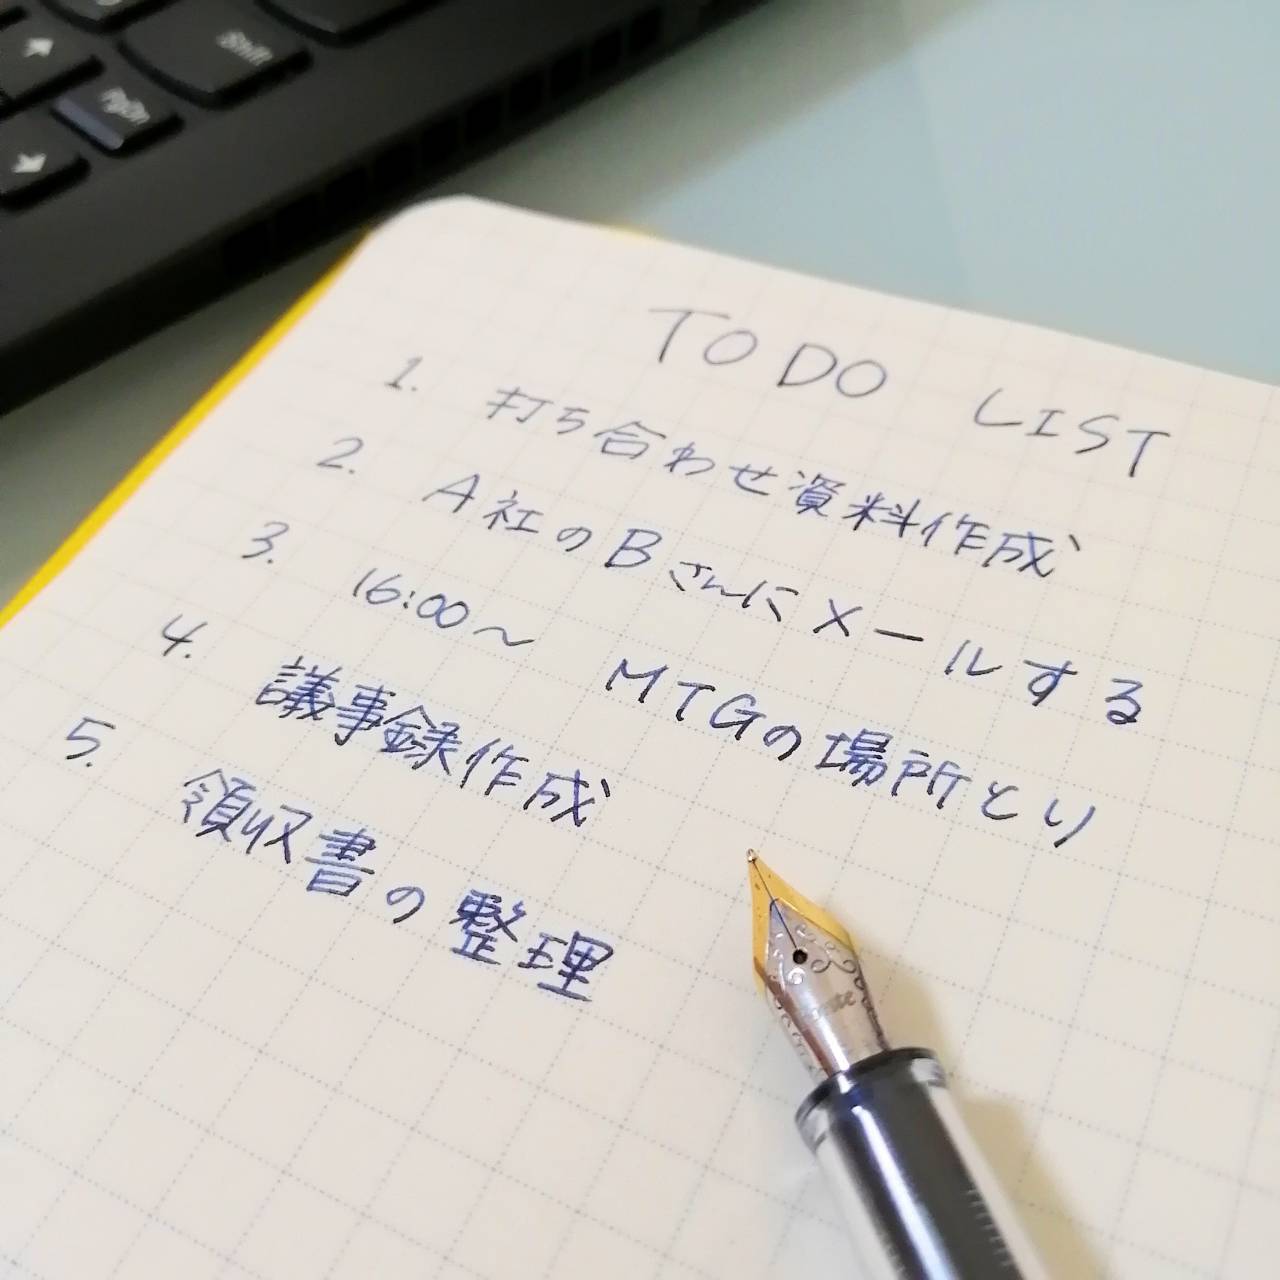 Shift
PgDn
TO DO LIST
1. 打ち合わせ資料作成
2. A社のBさんにメールする
3. 16:00〜 MTGの場所とり
4. 議事録作成
5. 領収書の整理